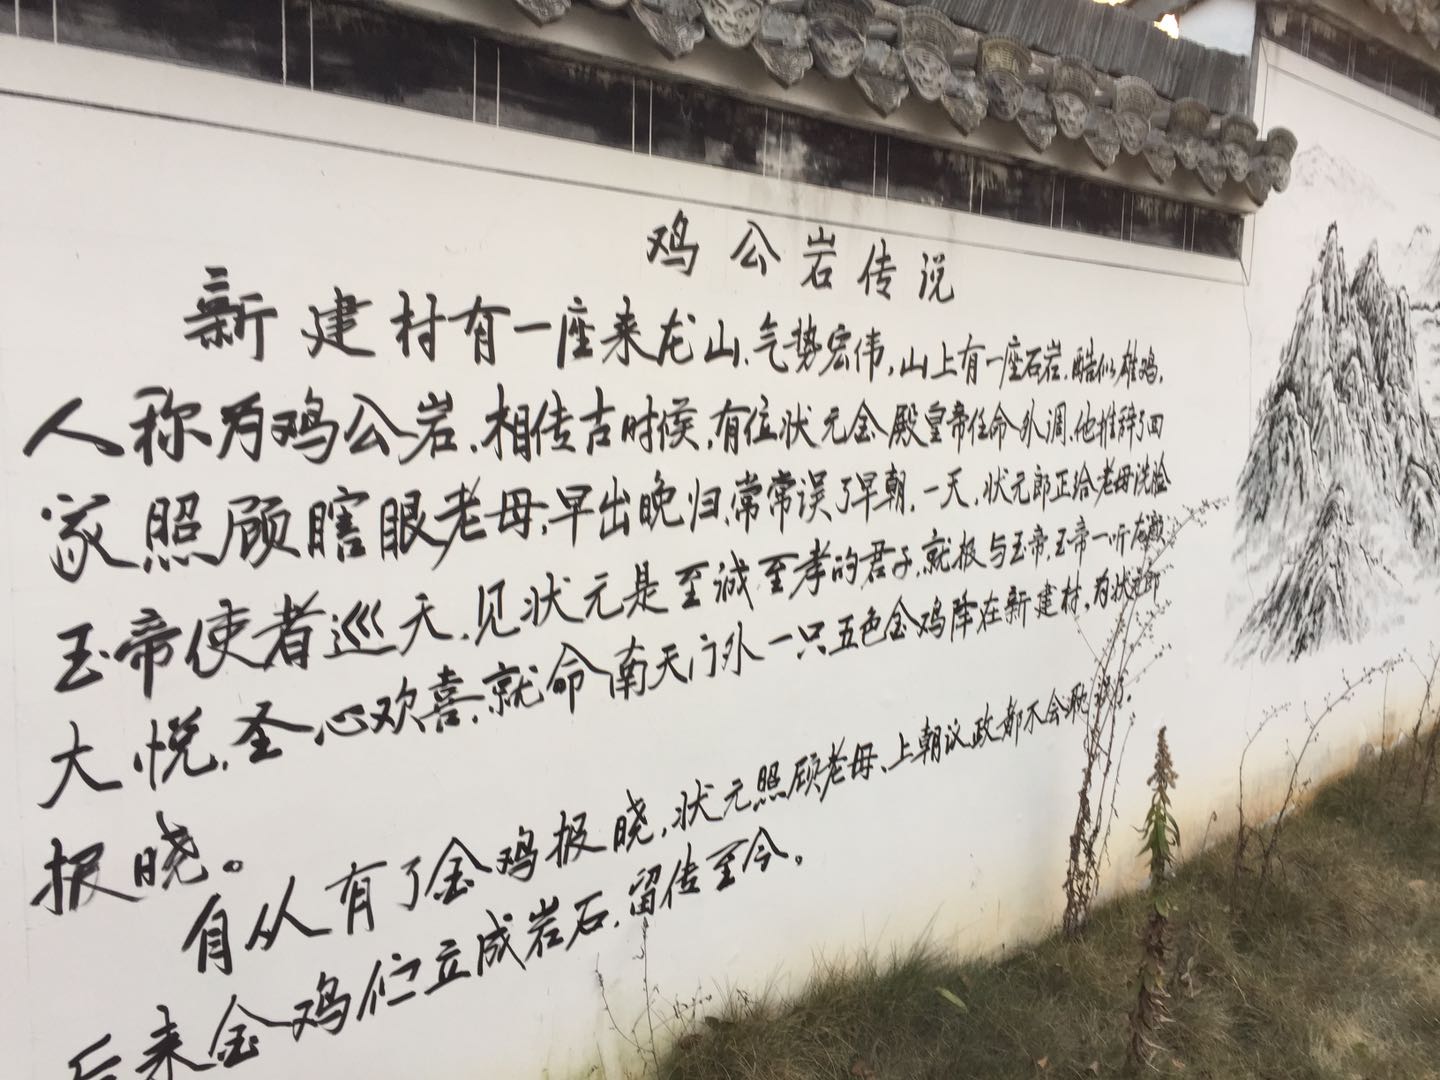 鸡公岩传说
新建村有一座来龙山,气势宏伟,山上有一座石岩,酷似雄鸡,
人称为鸡公岩,相传古时候,有位状元金殿皇帝任命外调,他推辞了回
家照顾瞎眼老母,早出晚归,常常误了早朝,一天,状元郎正给老母洗脸
玉帝使者巡天,见状元是至诚至孝的君子,就报与玉帝,玉帝一听龙颜
大悦,圣心欢喜,就命南天门外一只五色金鸡降在新建村,为状元郎
报晓。
自从有了金鸡报晓,状元照顾老母、上朝议政都不会耽误了.
后来金鸡伫立成岩石,留传至今。